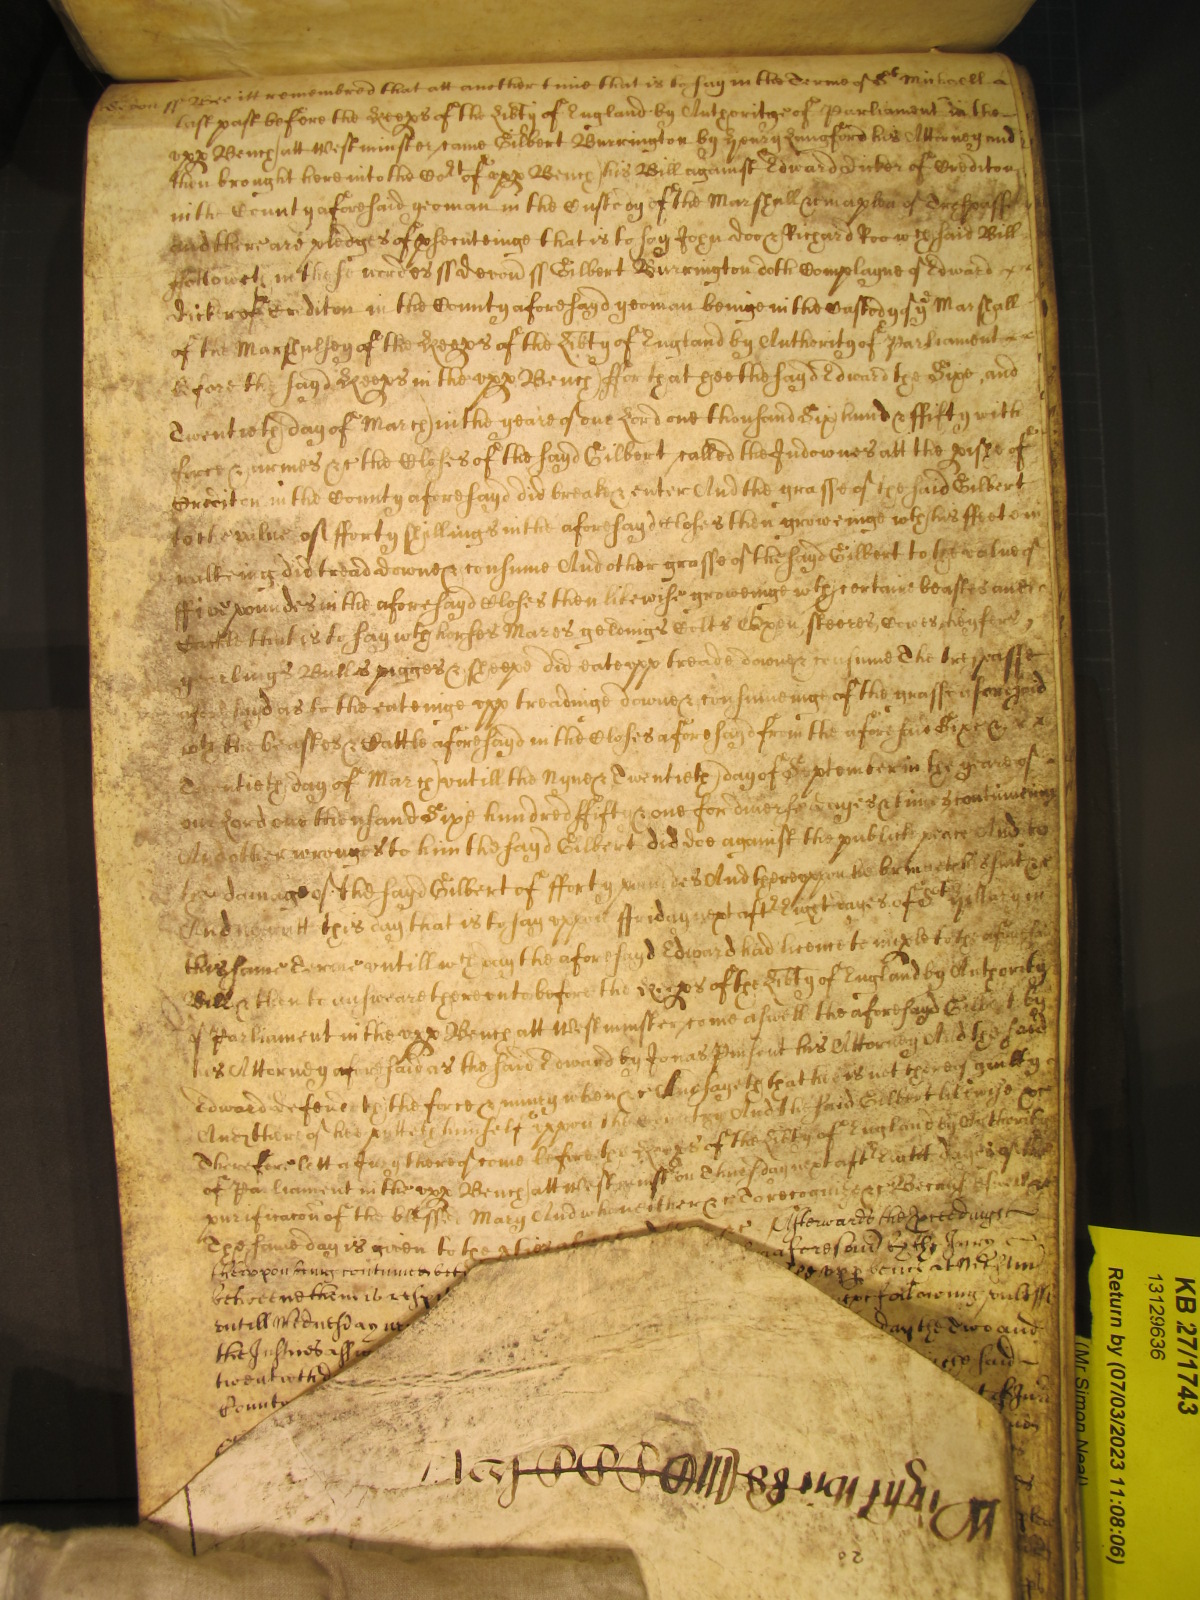 Devon ss Bee itt remembred that att another time that is to say in the Terme of St Michaell
last past before the Keeps of the Libty of England by Authoritye of Parliament in the
upp Bench att Westminster came Gilbert Burrington by Henry Langford his Attorney and
then brought here into the Cort of upp Bench his Bill against Edward Dicker of Crediton
in the County aforesaid yeoman in the Custody of the Marshall &c in a plea of Trespasse
and there are pledges of psecuteinge that is to say John Doo & Richard Roo wch said Bill
ffolloweth in these wordes ss Devon ss Gilbert Burrington doth Complayne of Edward
Dicker of Crediton in the County aforesayd yeoman beinge in the Custody of ye Marshall
of the Marshalsey of the Keeps of the Libty of England by Authority of Parliament
before the sayd Keeps in the upp Bench ffor that hee the sayd Edward the Sixe and
Twentieth day of March in the yeare of our Lord one thousand Six hund & ffifty with
force & armes &c the Closes of the sayd Gilbert called the Indownes att the pishe of
Crediton in the County aforesayd did breake & enter And the grasse of the said Gilbert
to the value of fforty shillings in the aforesayd Closes then groweinge wth his ffeete in
walkeing did tread downe & consume And other grasse of the sayd Gilbert to the value of
ffive poundes in the aforesayd Closes then likewise groweinge wth certaine beastes and
Cattle that is to say wth horses Mares geldings Colts Oxen steeres Cowes heyfers
yearlings Bulls pigges & sheepe did eate upp treade downe & consume The trespasse
aforesayd as to the eateinge upp treadinge downe & consumeinge of the grasse aforesaid
wth the beastes & Cattle aforesayd in the Closes aforesayd from the aforesaid Sixe &
Twentieth day of March untill the Nyne & Twentieth day of September in the yeare of
our Lord one thousand Sixe hundred ffifty & one for diverse dayes & times continueing
And other wronges to him the sayd Gilbert did doe against the publick peace And to
the damage of the sayd Gilbert of fforty poundes And thereuppon he bringeth suit &c
And now att this day that is to say uppon ffriday next aft Eight dayes of St Hillary in
this same Terme untill wch day the aforesayd Edward had licence to imple to the aforesaid
Bill & then to answeare thereunto before the Keeps of the Libty of England by Authority
of Parliament in the upp Bench att Westminster come aswell the aforesayd Gilbert by
his Attorney aforesaid as the said Edward by Jonas Pinsent his Attorney And the said
Edward defendeth the force & iniury when &c And sayth that hee is not thereof guilty
And thereof hee putteth himself uppon the country And the said Gilbert likewise &c
Therefore lett a Jury thereof come before the Keeps of the Libty of England by Authority
of Parliament in the upp Bench att Westminst on Thursday next aft Eight dayes of the
purificacon of the blessed Mary And who neither &c To recognize &c Because aswell &c
The same day is given to the pties Afterwards the proceedings
thereupon being continued aforesaid by the Jury
betweene them is upp bench at Westm
untill Wednesday next following unlesse
the Justices day the Two and
twentieth said
County
KB 27/1743
13129636
Return by (07/03/2023 11:08:06)
(Mr Simon Neal)